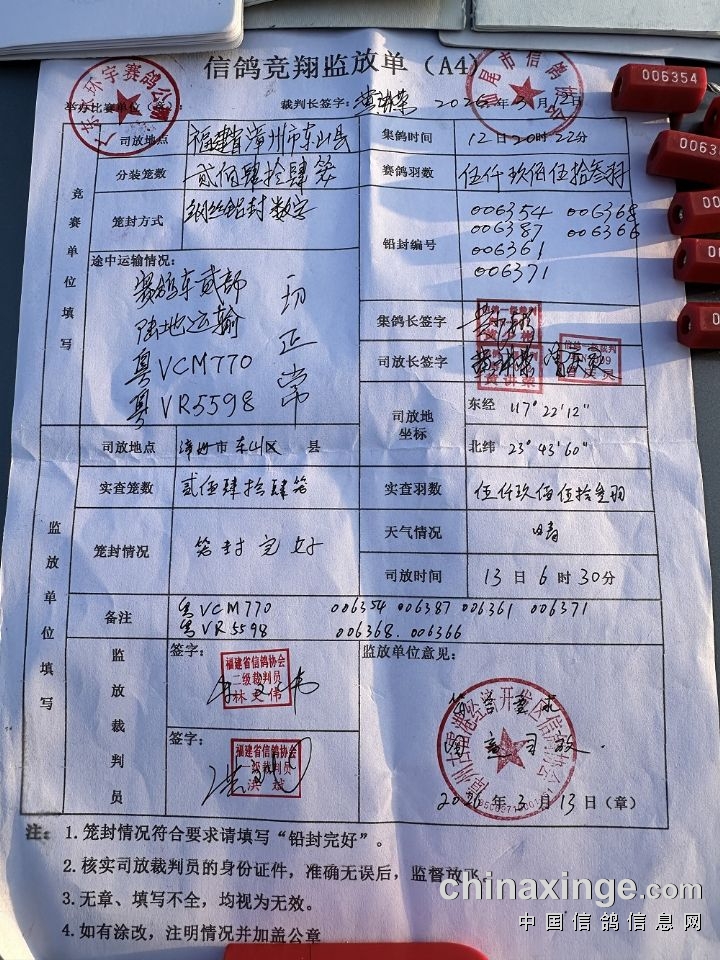 信鸽竞翔监放单（A4）
裁判长签字： 2026年3月12日
司放地点 福建省漳州市东山县 集鸽时间 12日20时22分
分装笼数 贰佰肆拾肆笼 赛鸽羽数 伍仟玖佰伍拾叁羽
竞赛单位填写
笼封方式 钢丝铅封数字 铅封编号
006354 006368
006387 006366
006361
006371
途中运输情况：
赛鸽车贰部
陆地运输
粤VCM770
粤VR5598
正常
集鸽长签字
司放长签字
司放地坐标
东经 117°22'12"
北纬 23°43'60"
司放地点 漳州市东山区 县
实查笼数 贰佰肆拾肆笼 实查羽数 伍仟玖佰伍拾叁羽
监放单位填写
笼封情况 笼封完好 天气情况 晴
司放时间 13日6时30分
备注
粤VCM770 006354 006387 006361 006371
粤VR5598 006368. 006366
监放裁判员
签字：
福建省信鸽协会
二级裁判员
签字：
福建省信鸽协会
级裁判员
监放单位意见：
2026年3月13日（章）
注：1.笼封情况符合要求请填写“铅封完好”。
2.核实司放裁判员的身份证件，准确无误后，监督放飞
3.无章、填写不全，均视为无效。
4.如有涂改，注明情况并加盖公章
006354
chinaxinge.com
中国信鸽信息网